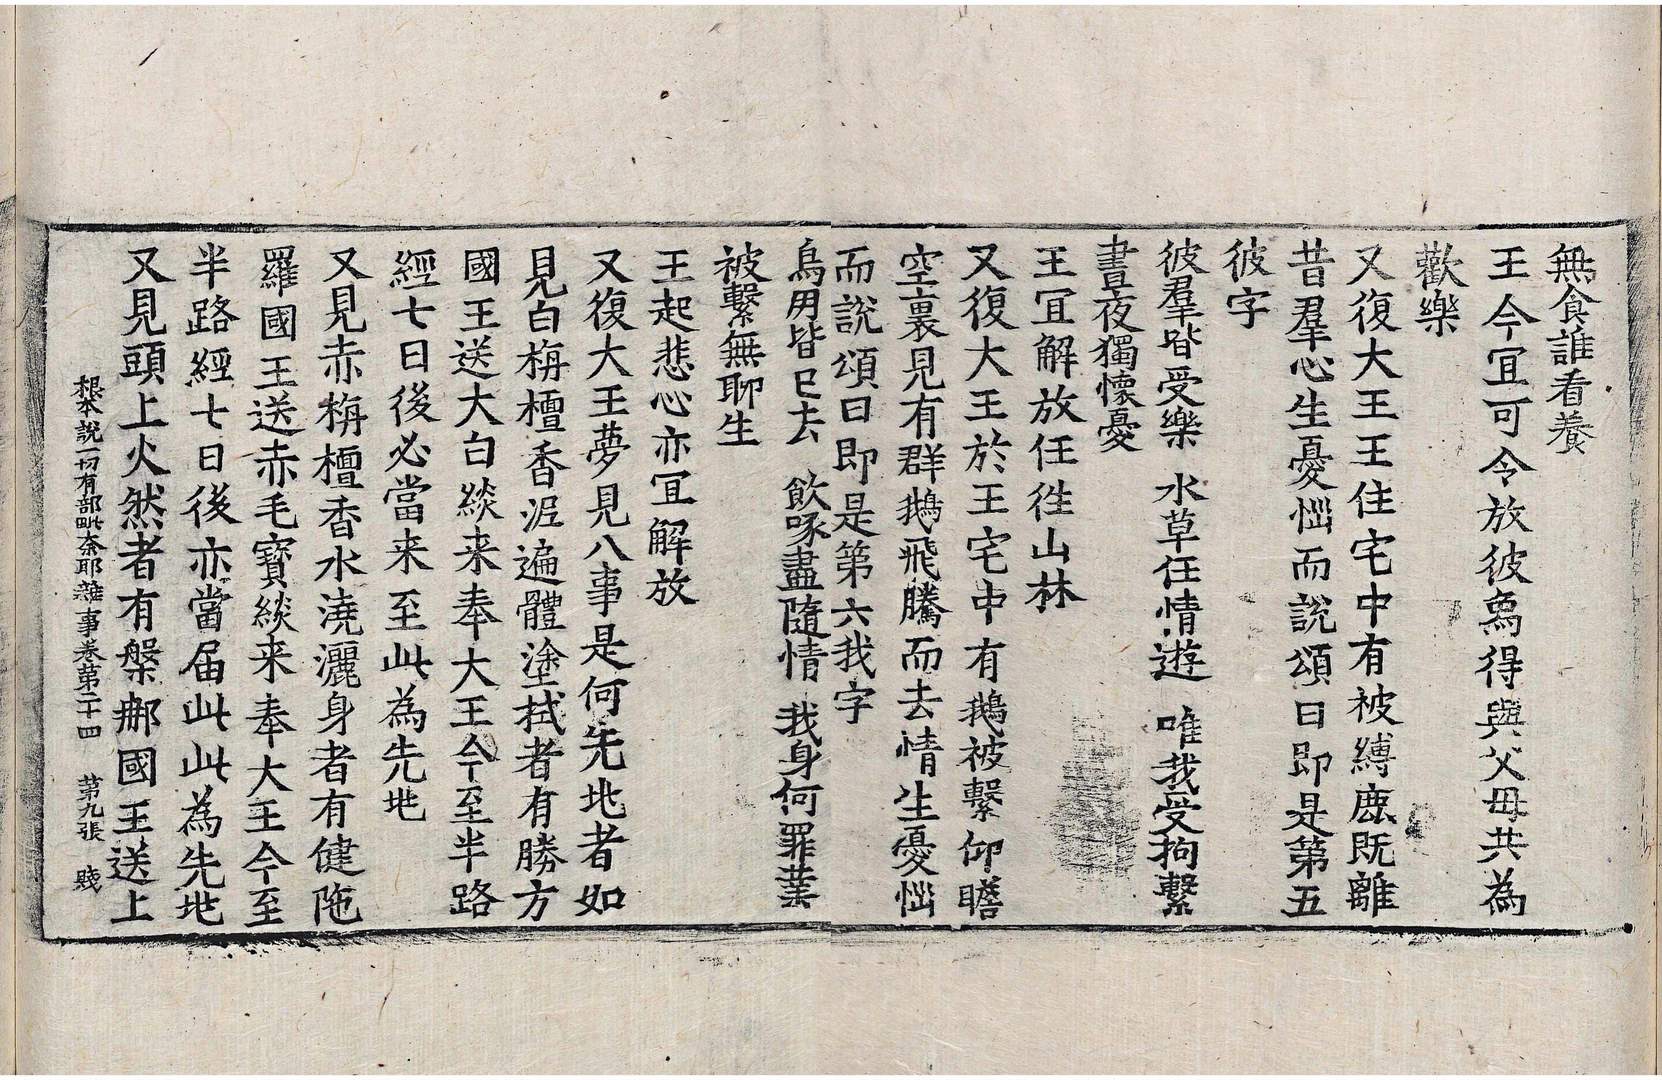 無食誰看養
王今冝可令放彼象得與父母共為
歡樂
又復大王王住宅中有被縛鹿既離
昔羣心生憂惱而說頌曰即是第五
彼字
彼羣皆受樂　水草任情遊　唯我受拘繫
晝夜獨懷憂
王冝解放任徃山林
又復大王於王宅中有鵝被繫仰瞻
空裏見有群鵝飛騰而去情生憂惱
而說頌曰即是第六我字
鳥朋皆已去　飲啄盡隨情　我身何罪業
被繫無聊生
王起悲心亦冝解放
又復大王夢見八事是何先兆者如
見白栴檀香泥遍體塗拭者有勝方
國王送大白緂来奉大王今至半路
經七日後必當来至此為先兆
又見赤栴檀香水澆灑身者有健陁
羅國王送赤毛寶緂来奉大王今至
半路經七日後亦當届此此為先兆
又見頭上火然者有槃那國王送上
根本說一切有部毗奈耶雜事卷第二十四　第九張　賤